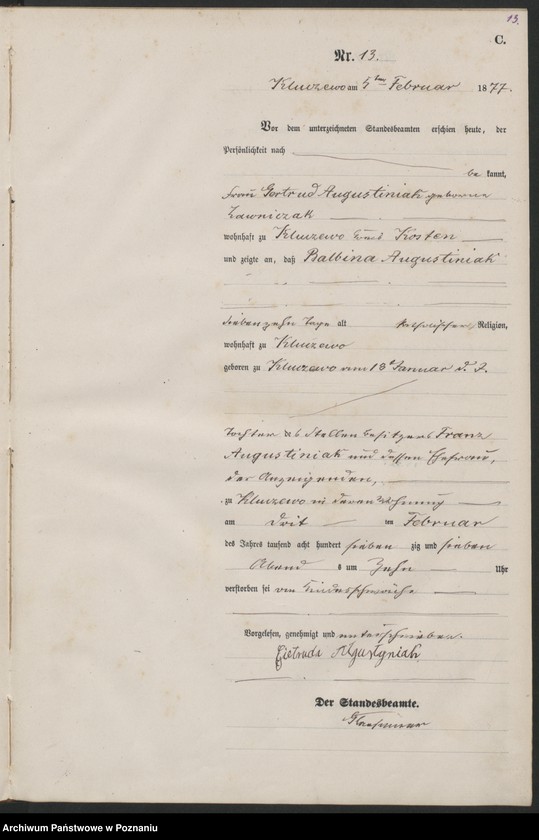 13.
C.
Nr. 13.
Kluczewo am 5ten Februar 1877.
Vor dem unterzeichneten Standesbeamten erschien heute, der
Persönlichkeit nach
be kannt,
Frau Gertrud Augustiniak geborene
Lawniczak
wohnhaft zu Kluczewo Kreis Kosten
und zeigte an, daß Balbina Augustiniak
siebenzehn Tage alt katholischer Religion,
wohnhaft zu Kluczewo
geboren zu Kluczewo am 18t Januar d. J.
Tochter des Stellenbesitzers Franz
Augustiniak und dessen Ehefrau,
der Anzeigenden,
zu Kluczewo in deren Wohnung
am drit ten Februar
des Jahres tausend acht hundert sieben zig und sieben
Abend s um Zehn Uhr
verstorben sei an Kindesschwäche
Vorgelesen, genehmigt und unterschrieben.
Gietruda Algustyniak
Der Standesbeamte.
Archiwum Państwowe w Poznaniu